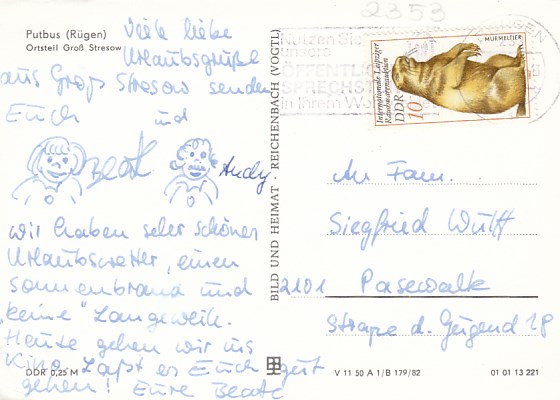 Putbus (Rügen)
Ortsteil Groß Stresow
Viele liebe
Urlaubsgrüße
aus Groß Stresow senden
Euch und
Beate Andy.
wir haben sehr schönes
Urlaubswetter, einen
Sonnenbrand und
"keine" Langeweile.
Heute gehen wir ins
Kino. Laßt es Euch gut
gehen! Eure Beate
DDR 0,25 M
BILD UND HEIMAT · REICHENBACH (VOGTL)
2353
Nutzen Sie
unsere
ÖFFENTLI
SPRECHST
in Ihrem Wo
MURMELTIER
Internationale Leipziger
Rauchwarenauktion
DDR 10
An Fam.
Siegfried Wulff
2101 Pasewalk
Straße d. Jugend 18
V 11 50 A 1/B 179/82
01 01 13 221